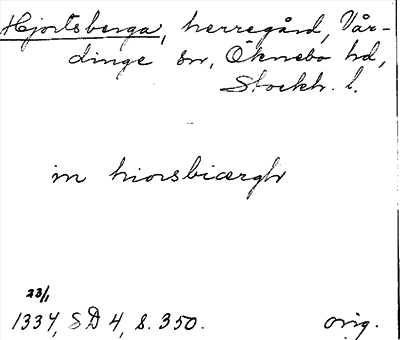 Hjortsberga, herregård, Vår-
dinge sn, Öknebo hd,
Stockh. l.
in hiorsbiærgh
23/1
1334, SD 4, s. 350. orig.